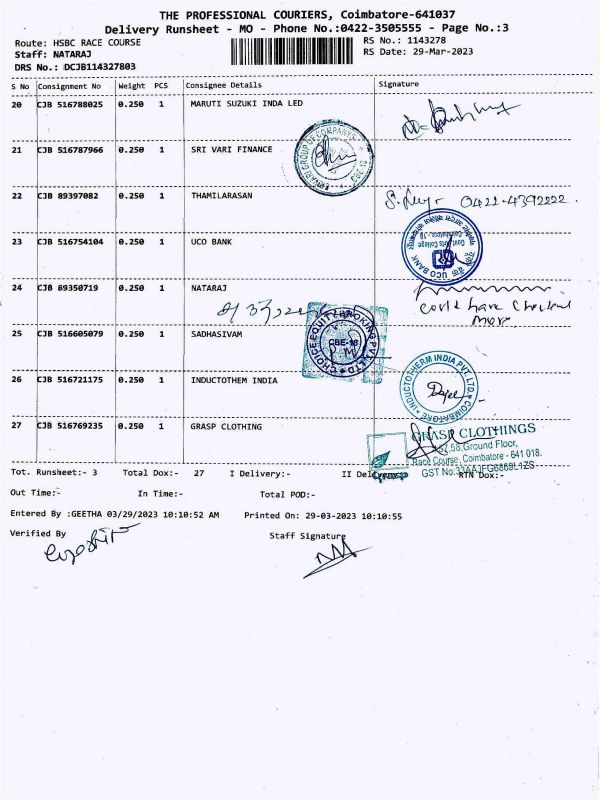 THE PROFESSIONAL COURIERS, Coimbatore-641037
Delivery Runsheet - MO - Phone No.:0422-3505555 - Page No.:3
Route: HSBC RACE COURSE RS No.: 1143278
Staff: NATARAJ RS Date: 29-Mar-2023
DRS No.: DCJB114327803
S No Consignment No Weight PCS Consignee Details Signature
20 CJB 516788025 0.250 1 MARUTI SUZUKI INDA LED
21 CJB 516787966 0.250 1 SRI VARI FINANCE
GROUP OF COMPANIES
CBE-18
22 CJB 89397082 0.250 1 THAMILARASAN
0422-4392222.
23 CJB 516754104 0.250 1 UCO BANK
UCO BANK
Govt. Arts College
Coimbatore - 18
24 CJB 89350719 0.250 1 NATARAJ
25 CJB 516605079 0.250 1 SADHASIVAM
CHOICE EQUITY BROKING PVT. LTD
CBE-18
26 CJB 516721175 0.250 1 INDUCTOTHEM INDIA
INDUCTOTHERM INDIA PVT. LTD.
COIMBATORE
27 CJB 516769235 0.250 1 GRASP CLOTHING
GRASP CLOTHINGS
58, Ground Floor,
Race Course, Coimbatore - 641 018.
Tot. Runsheet:- 3 Total Dox:- 27 I Delivery:- II Delivery:- RTN Dox:-
Out Time:- In Time:- Total POD:-
Entered By :GEETHA 03/29/2023 10:10:52 AM Printed On: 29-03-2023 10:10:55
Verified By Staff Signature